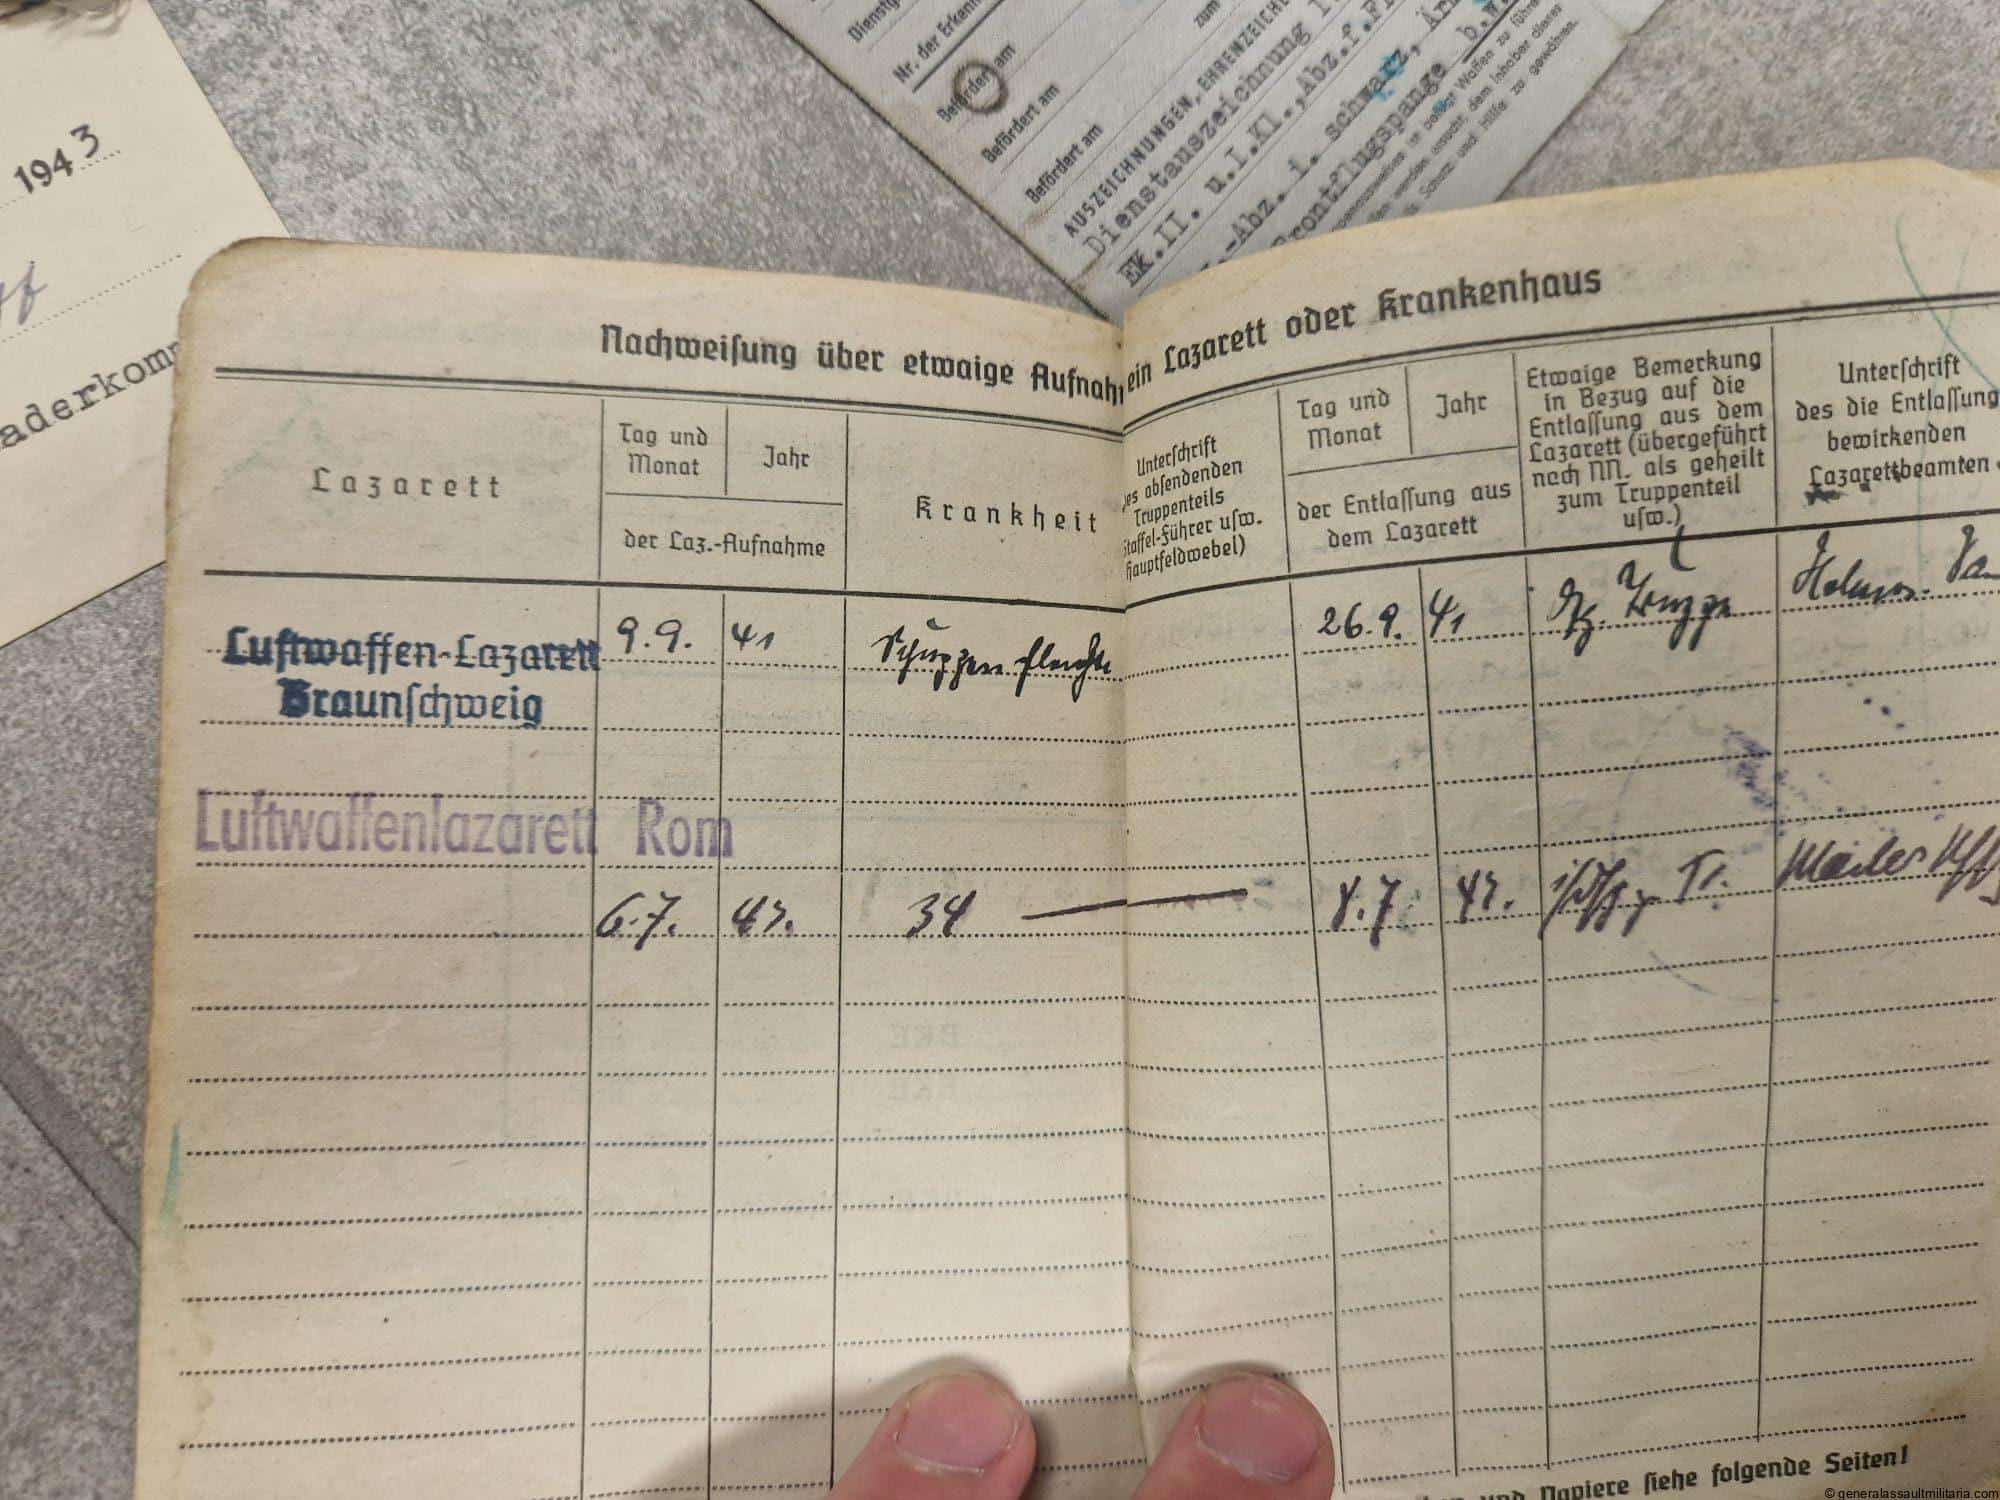 1943
aderkom
Dienstg
Nr. der Erkenn
Befördert am
Befördert am
Befördert am
zum
AUSZEICHNUNGEN, EHRENZEICHE
Dienstauszeichnung
EK.II. u.I.Kl.,Abz.f.Fl
-Abz. i. schwarz, Är
Frontflugspange b.
Schutz und Hilfe zu gewähren.
Nachweiſung über etwaige Aufnah ein Lazarett oder Krankenhaus
Lazarett
Tag und
Monat
Jahr
der Laz.-Aufnahme
Krankheit
Unterſchrift
des abſendenden
Truppenteils
Staffel-Führer uſw.
Hauptfeldwebel)
Tag und
Monat
Jahr
der Entlaſſung aus
dem Lazarett
Etwaige Bemerkung
in Bezug auf die
Entlaſſung aus dem
Lazarett (übergeführt
nach NN. als geheilt
zum Truppenteil
uſw.)
Unterſchrift
des die Entlaſſung
bewirkenden
Lazarettbeamten
Luftwaffen-Lazarett
Braunſchweig
9.9. 41 Schuppenflechte 26.9. 41 Truppe
Luftwaffenlazarett Rom
6.7. 43. 34 8.7 43. Tr.
und Papiere ſiehe folgende Seiten!
© generalassaultmilitaria.com